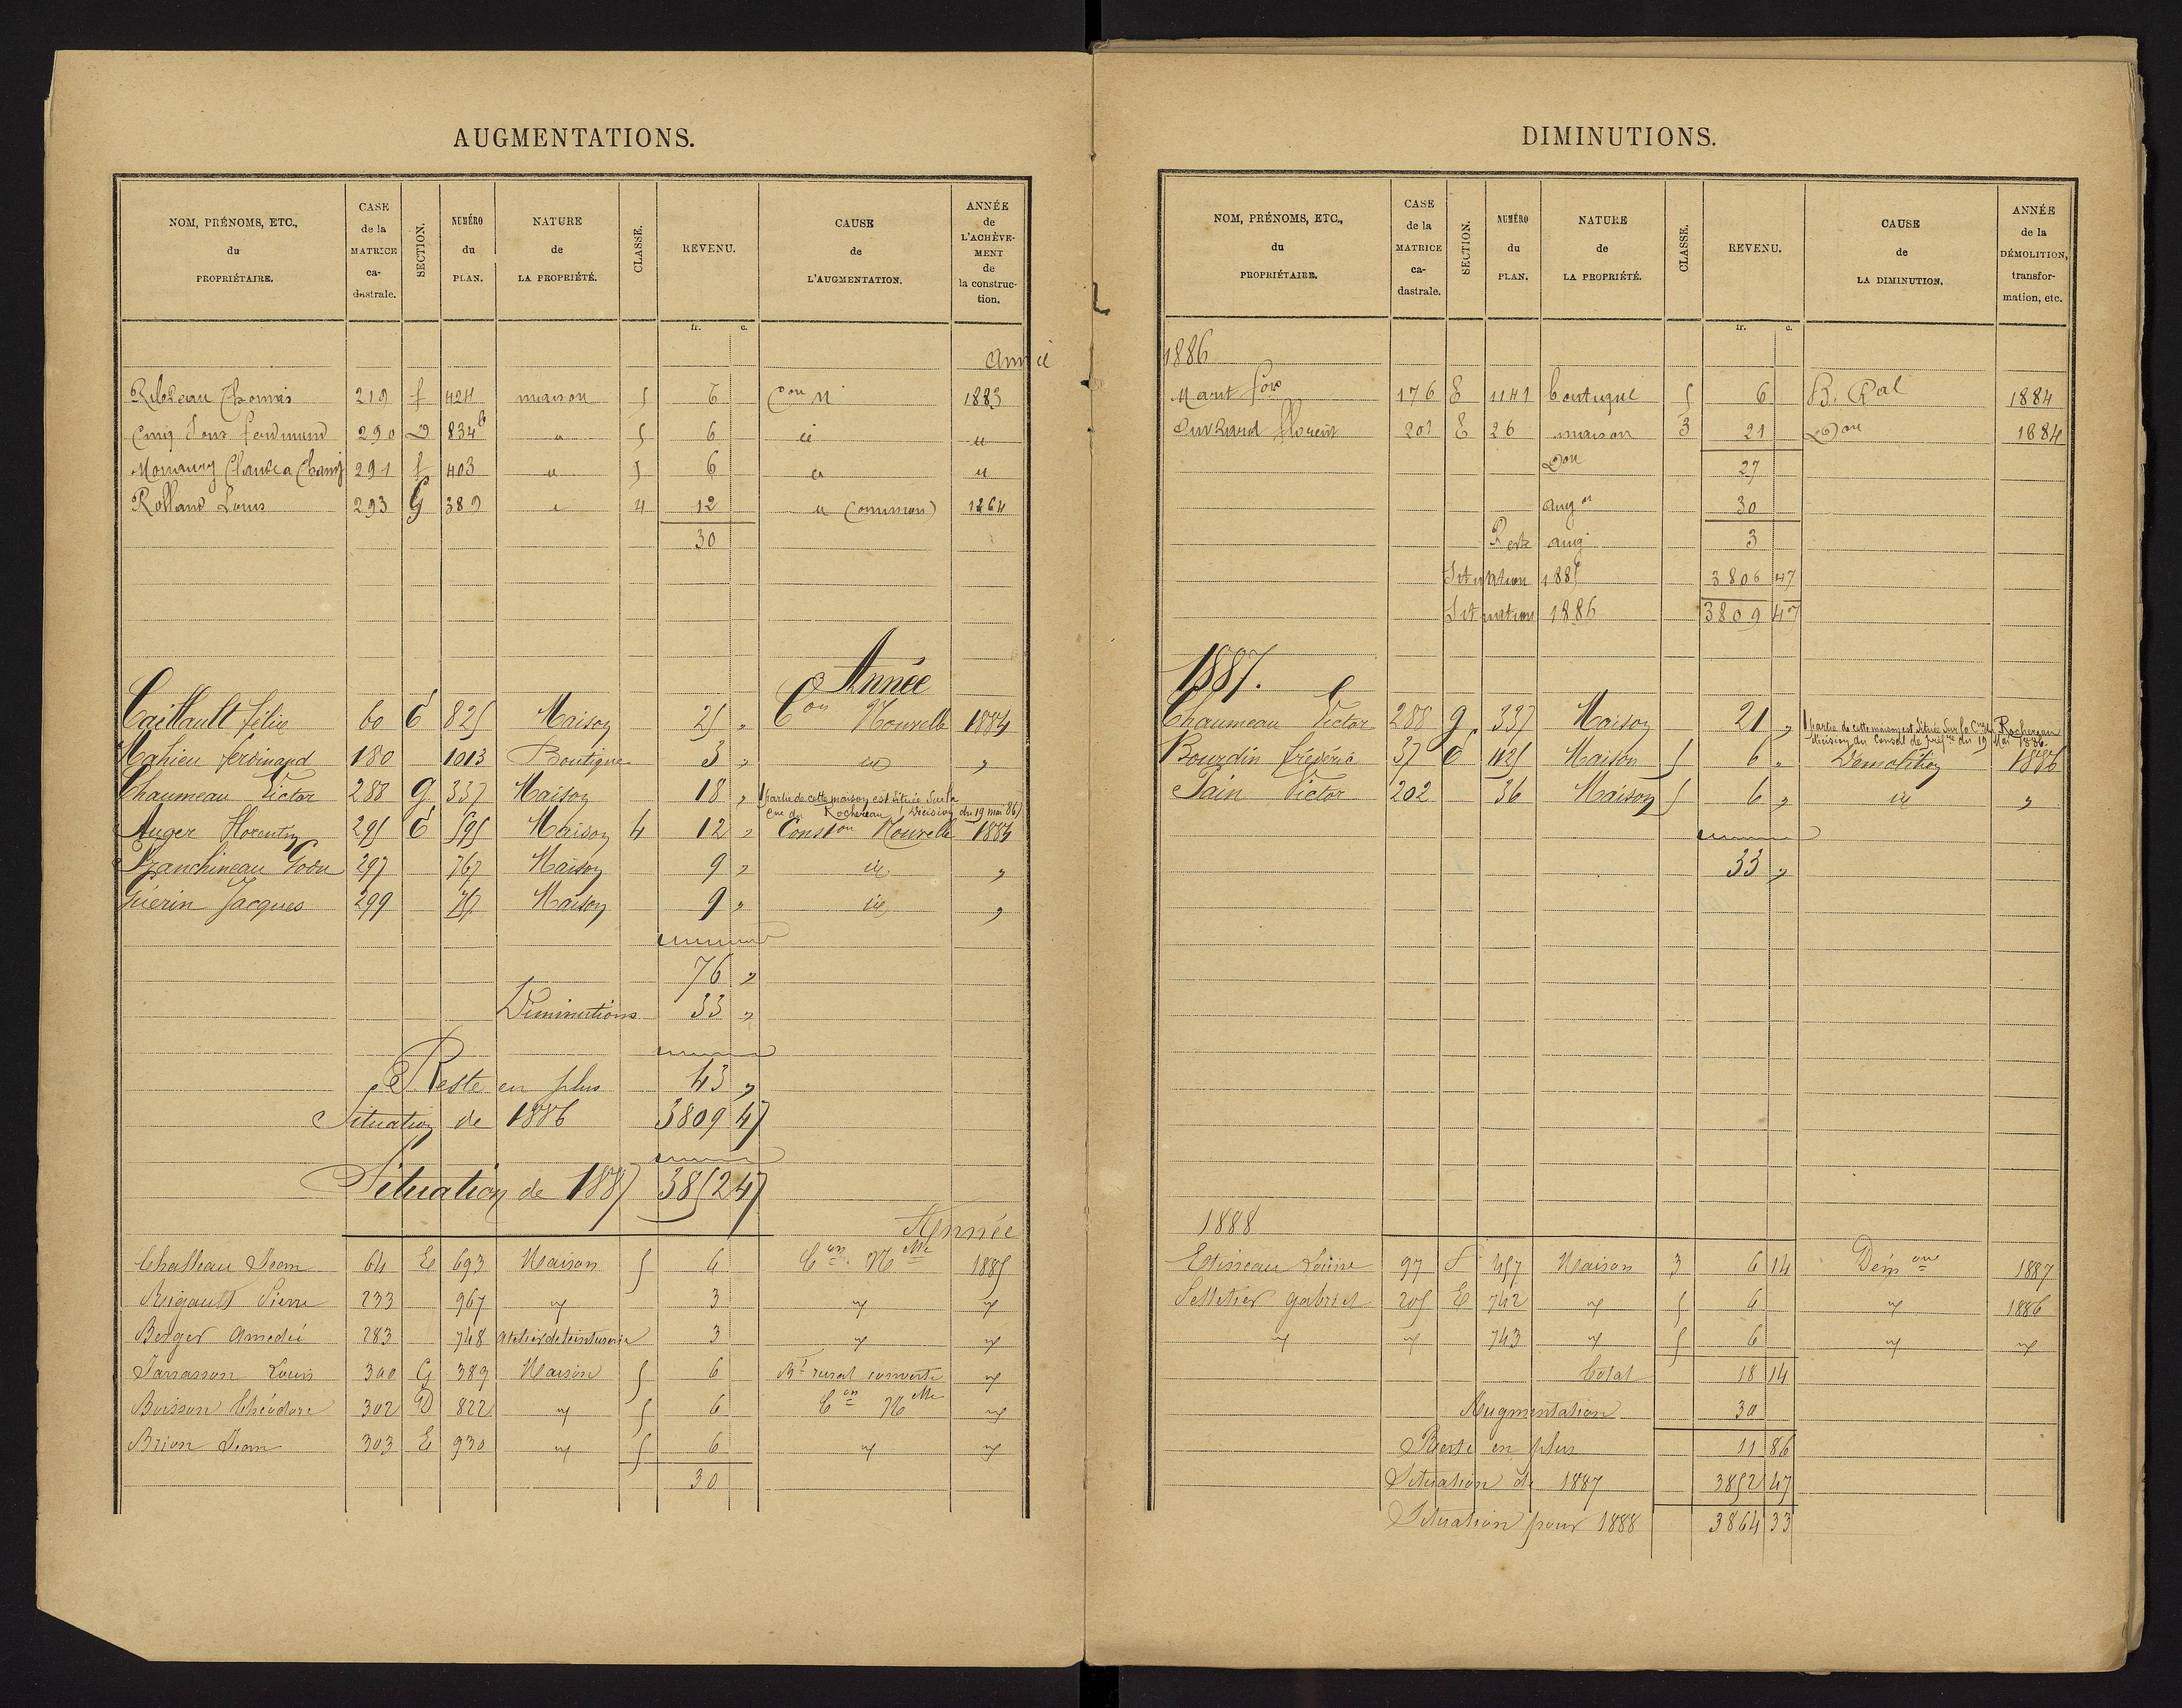 AUGMENTATIONS.
NOM, PRÉNOMS, ETC., du PROPRIÉTAIRE. CASE de la MATRICE ca- dastrale. SECTION. NUMÉRO du PLAN. NATURE de LA PROPRIÉTÉ. CLASSE. REVENU. CAUSE de L'AUGMENTATION. ANNÉE de L'ACHÈVE- MENT de la construc- tion.
fr. c.
Année
Thomas 219 f 424 maison 5 6 Con N 1883
290 D 834 b " 5 6 id "
291 f 403 " 5 6 " "
Rolland Louis 293 G 389 " 4 12 " (omission) 1864
30
Année
Caillault félix 60 E 825 Maison 25 " Con Nouvelle 1884
Mahieu ferdinand 180 1013 Boutique 3 " id "
Chaumeau Victor 288 g 337 Maison 18 " 1 partie de cette maison est située sur la
Cne du Rochereau (Décision du 19 mai 86)
Auger Florentin 295 E 595 Maison 4 12 " Conston Nouvelle 1884
297 767 Maison 9 " id "
Guérin Jacques 299 767 Maison 9 " id "
76 "
Diminutions 33 "
Reste en plus 43 "
Situation de 1886 3809 47
Situation de 1887 3852 47
Année
Jean 64 E 693 Maison 5 6 Con Nelle 1885
Pierre 233 967 " 3 " "
Berger Amedée 283 748 Atelier de teinturerie 3 " "
Louis 300 G 389 Maison 5 6 Bt rural converti "
Buisson Théodore 302 D 822 " 5 6 Con Nelle "
Brion Jean 303 E 930 " 5 6 " "
30
DIMINUTIONS.
NOM, PRÉNOMS, ETC., du PROPRIÉTAIRE. CASE de la MATRICE ca- dastrale. SECTION. NUMÉRO du PLAN. NATURE de LA PROPRIÉTÉ. CLASSE. REVENU. CAUSE de LA DIMINUTION. ANNÉE de la DÉMOLITION, transfor- mation, etc.
fr. c.
1886
fois 176 E 1141 boutique 5 6 B. Ral 1884
Florent 201 E 26 maison 3 21 Don 1884
Don 27
augon 30
Reste aug 3
Situation 1885 3806 47
Situation 1886 3809 47
1887.
Chaumeau Victor 288 g 337 Maison 21 " 1 partie de cette maison est située sur la Cne du Rochereau
décision du Conseil de préfre du 19 Mai 1886.
Bourdin frédéric 37 E 1125 Maison 5 6 " Démolition 1886
Pain Victor 202 36 Maison 5 6 " id "
33 "
1888
97 457 Maison 3 6 14 1887
Pelletier gabriel 205 E 742 " 5 6 " 1886
" " 743 " 5 6 " "
Total 18 14
Augmentation 30
Reste en plus 11 86
Situation de 1887 3852 47
Situation pour 1888 3864 33